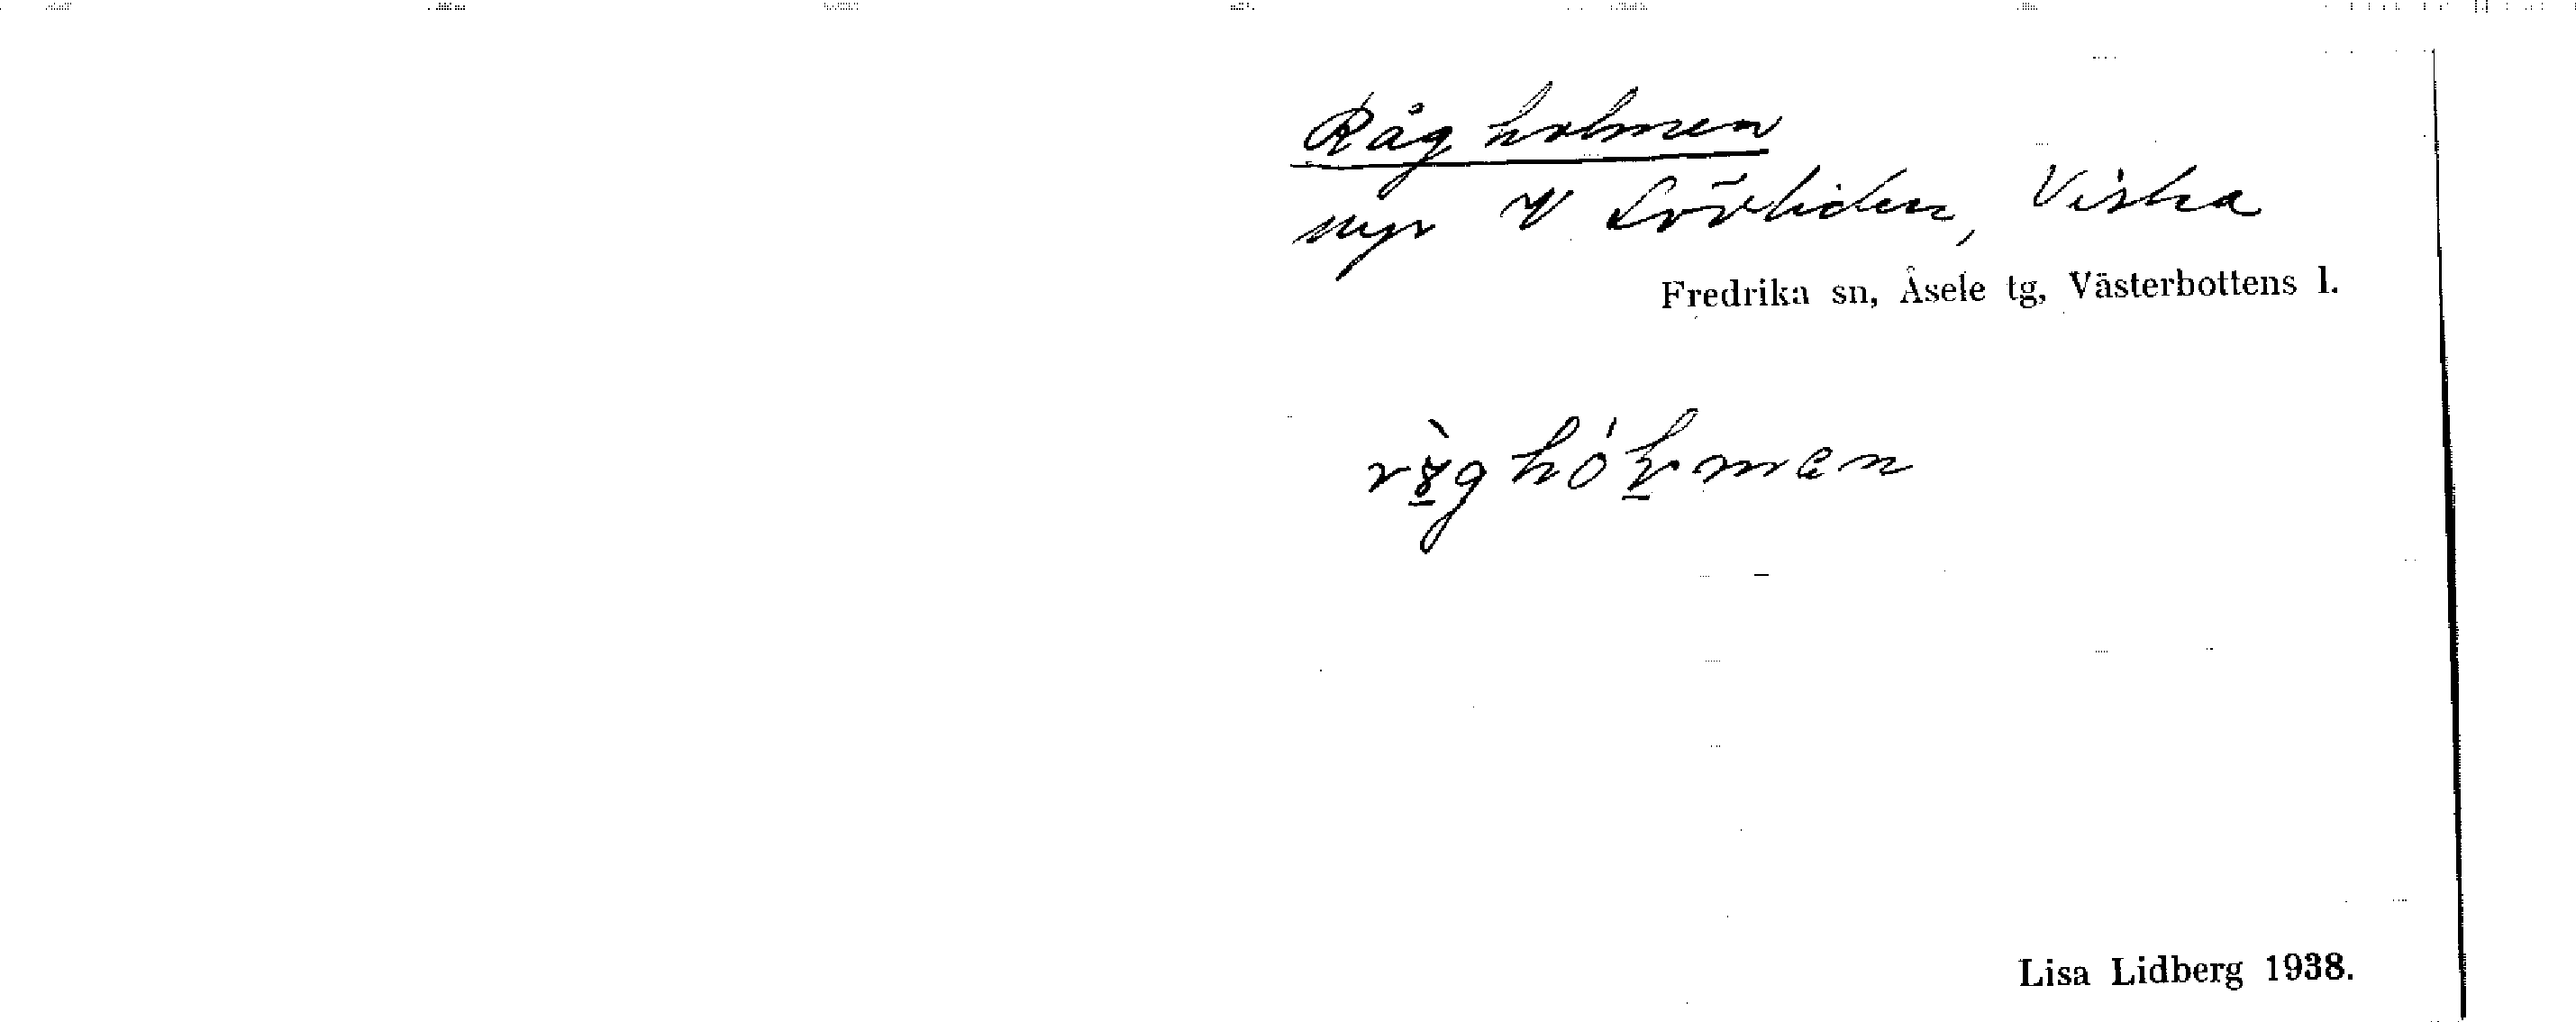 Råg holmen
myr V Lövliden, Viska
Fredrika sn, Åsele tg, Västerbottens l.
Lisa Lidberg 1938.